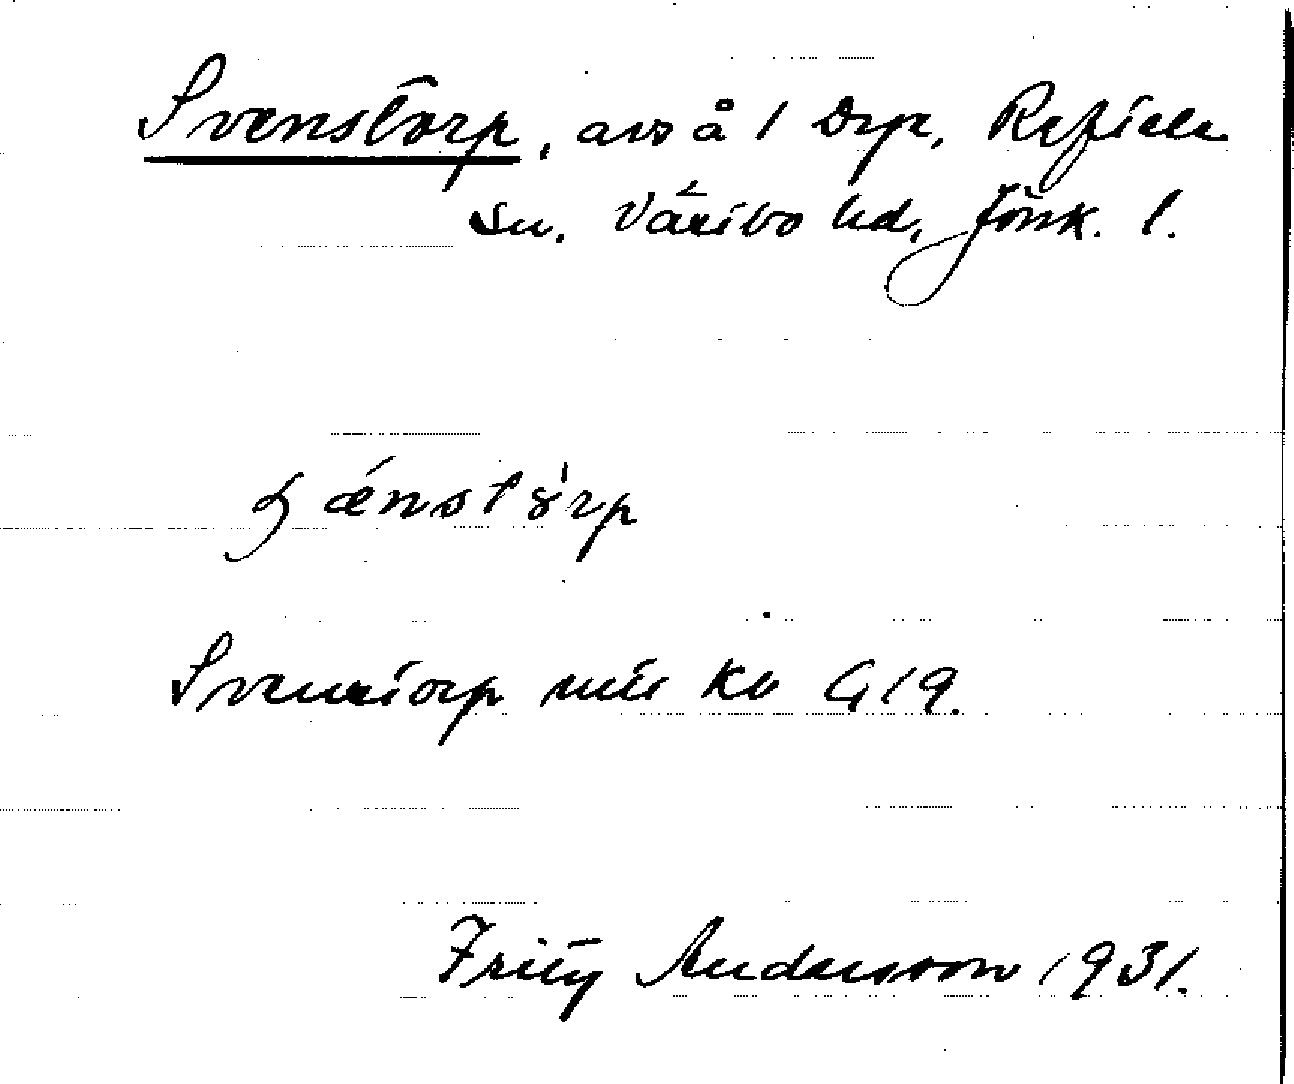 Svenstorp, avs å 1 Drp, Reftele
sn. Västbo hd, Jönk. l.
ænstörp
Svenstorp mtl kb G 19.
Fritz Andersson 1931.